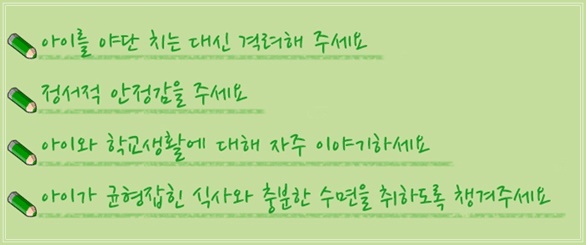 아이를 야단 치는 대신 격려해 주세요
정서적 안정감을 주세요
아이와 학교생활에 대해 자주 이야기하세요
아이가 균형잡힌 식사와 충분한 수면을 취하도록 챙겨주세요